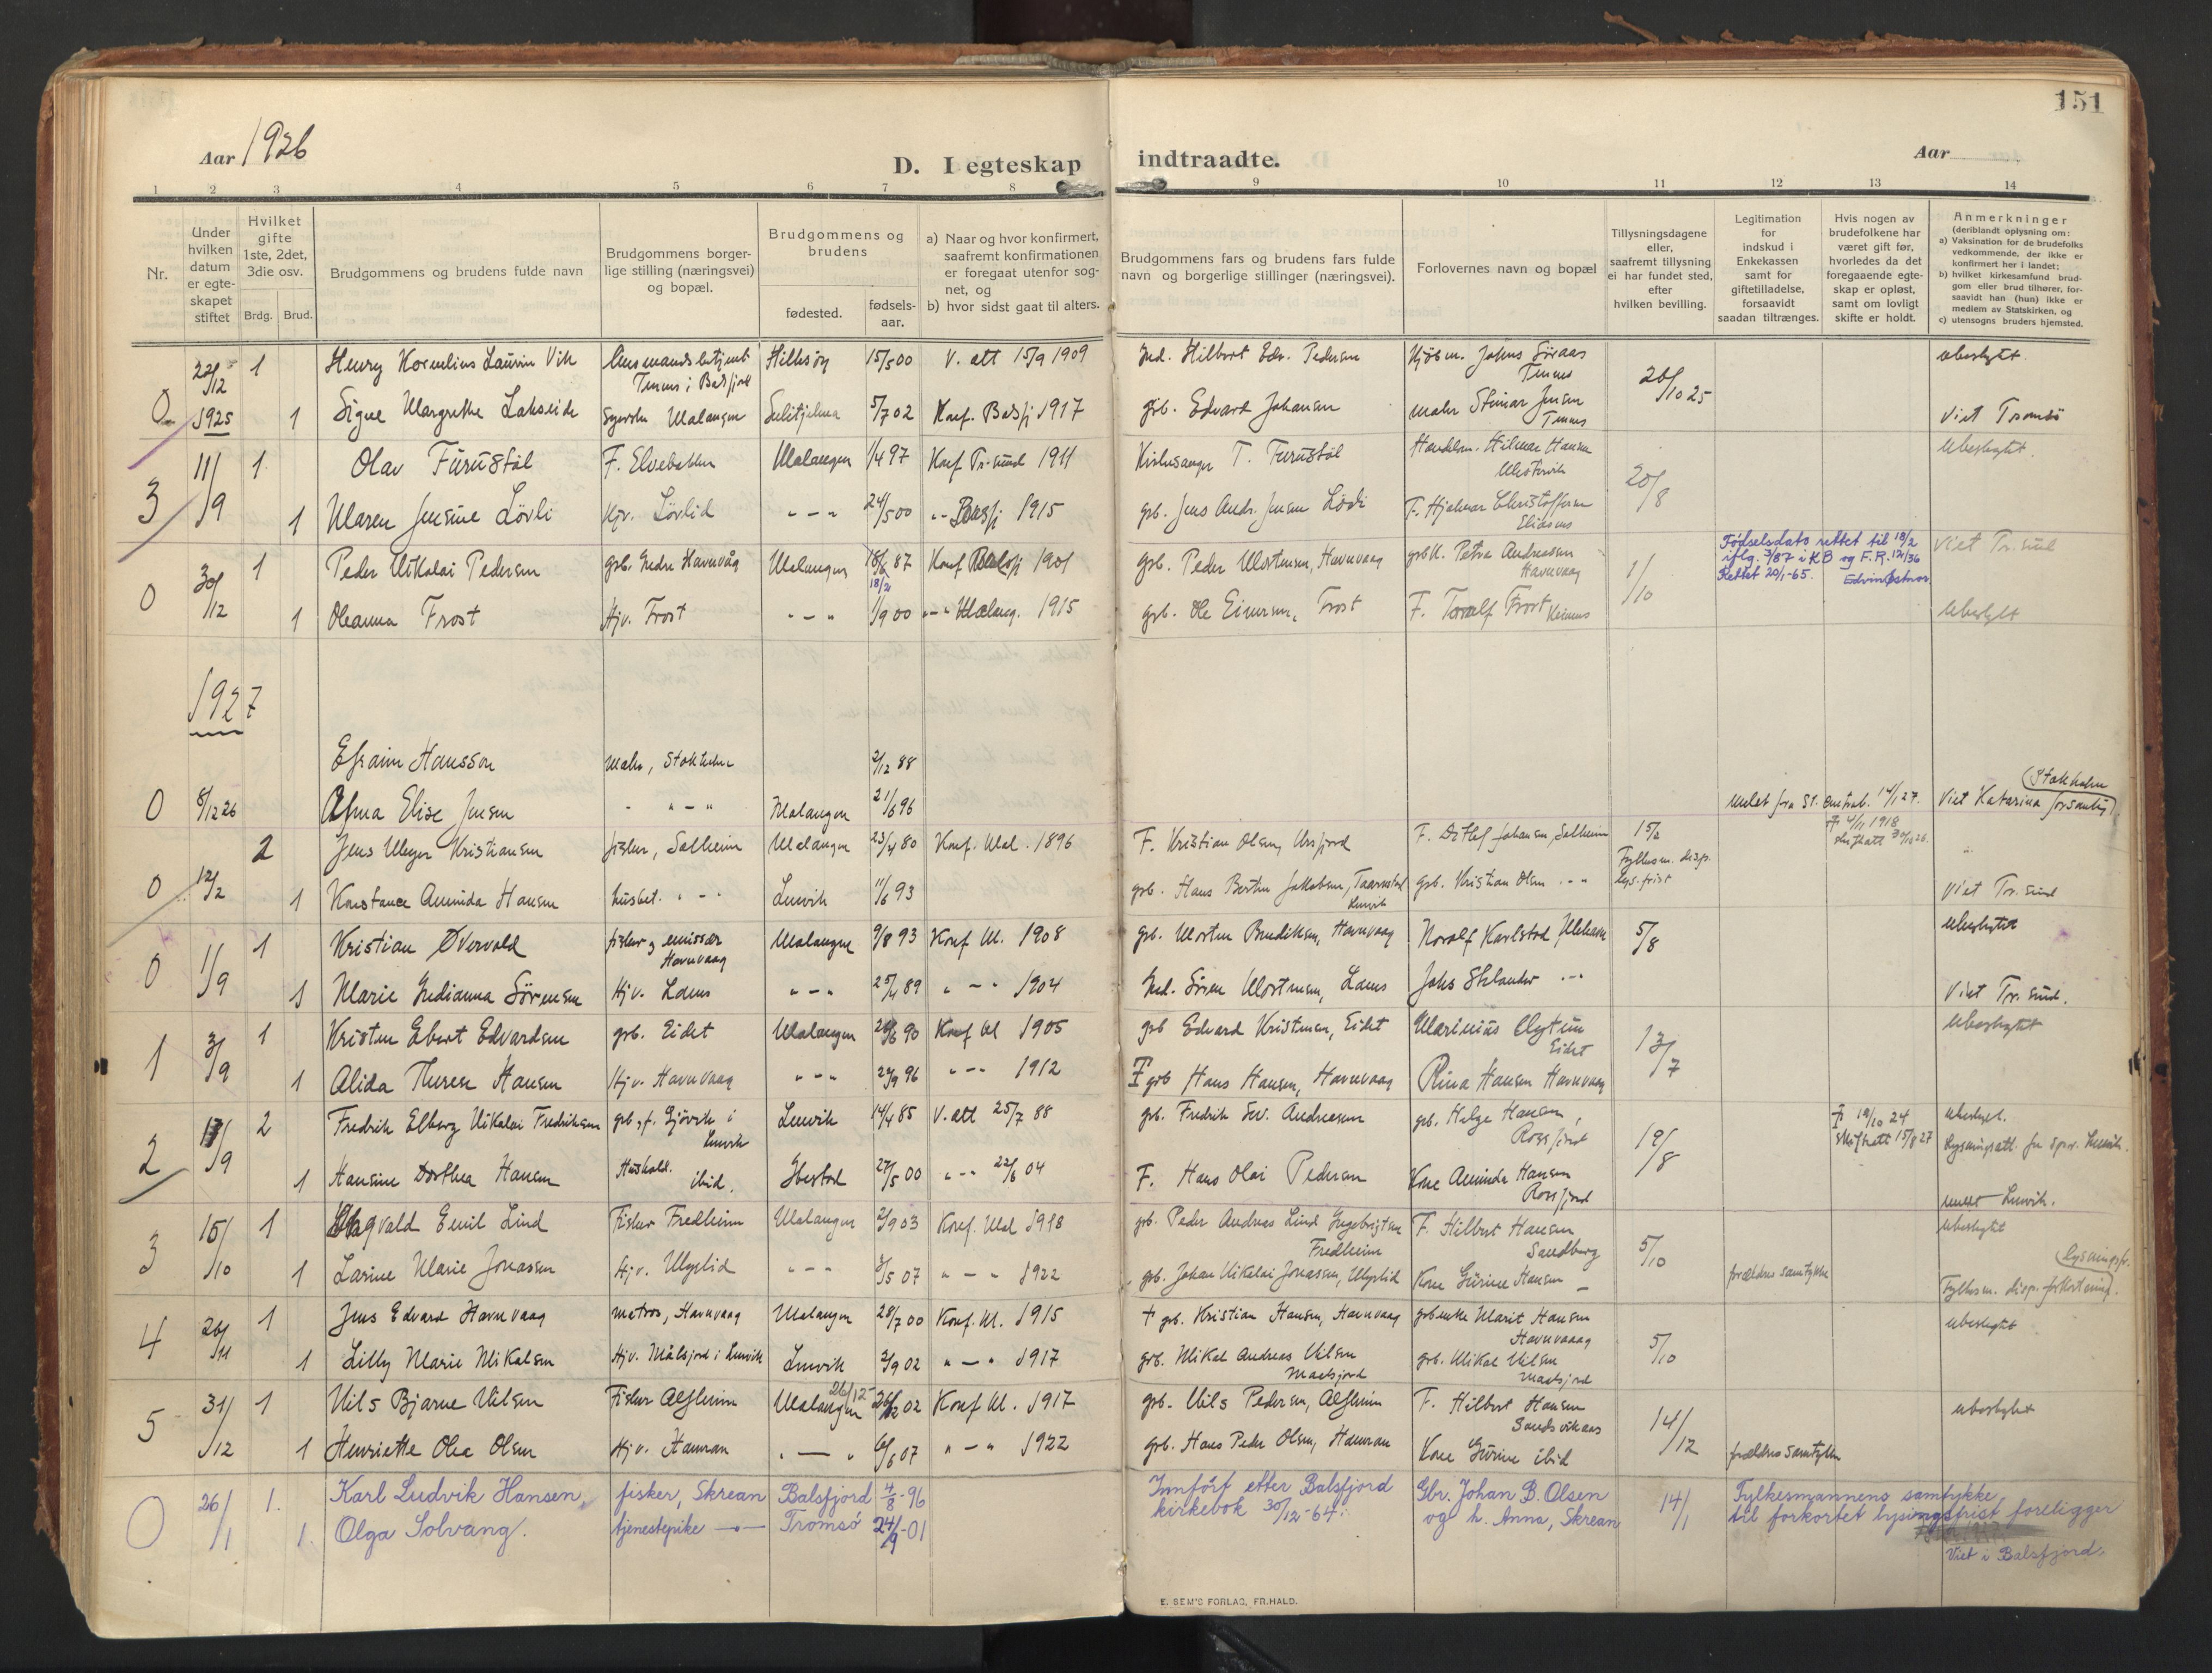 151
Aar 1926
D. I egteskap indtraadte.
Aar
1 2 3 4 5 6 7 8 9 10 11 12 13 14
Nr.
Under hvilken datum er egteskapet stiftet
Hvilket gifte 1ste, 2det, 3die osv.
Brdg. Brud.
Brudgommens og brudens fulde navn
Brudgommens borgerlige stilling (næringsvei) og bopæl.
Brudgommens og brudens
fødested.
fødselsaar.
a) Naar og hvor konfirmert, saafremt konfirmationen er foregaat utenfor sognet, og
b) hvor sidst gaat til alters.
Brudgommens fars og brudens fars fulde navn og borgerlige stillinger (næringsvei).
Forlovernes navn og bopæl
Tillysningsdagene eller, saafremt tillysning ei har fundet sted, efter hvilken bevilling.
Legitimation for indskud i Enkekassen samt for giftetilladelse, forsaavidt saadan tiltrænges.
Hvis nogen av brudefolkene har været gift før, hvorledes da det foregaaende egteskap er opløst, samt om lovligt skifte er holdt.
Anmerkninger
(deriblandt oplysning om:
a) Vaksination for de brudefolks vedkommende, der ikke er konfirmert her i landet;
b) hvilket kirkesamfund brudgom eller brud tilhører, forsaavidt han (hun) ikke er medlem av Statskirken, og
c) utensogns bruders hjemsted.
0 22/12 1925 1 Henry Kornelius Laurin Vik Hillesøy 15/5 00 V. att 15/9 1909 Ind. Hilbert Edv. Pedersen 20/10 25 ubeslegtet
1 Signe Margrethe Lakseide Malangen Sulitjelma 5/7 02 Konf. Balsfj 1917 grb. Edvard Johansen Steinar Jensen Viet Tromsø
3 11/9 1 Olav Furustøl F. Elvebakken Malangen 1/4 97 Konf Tr.sund 1911 Kirkesanger T. Furustøl Handelsm. Hilmar Hansen 20/8 Ubeslegtet.
1 Maren Jensine Løvli Hjv. Løvlid " - " 24/5 00 " - Balsfj 1915 grb. Jens Andr. Jensen Løvli F. Hjalmar Christoffersen
0 30/12 1 Peder Nikolai Pedersen grb. Indre Havnvåg Malangen 18/6 87 18/2 Konf Balsfj 1901 grb. Peder Mortensen, Havnvaag Petra Andreassen Havnvaag 1/10 Viet Tr.sund
Fødselsdato rettet til 18/2
iflg. 3/87 i KB og F.R. 12/36
Rettet 20/1-65.
1 Oleanna Frost Hjv. Frost " - " 1/9 00 " - " Malang. 1915 grb. Ole Einersen, Frost F. Toralf Frost Ubeslegtet
1927
Efraim Hansson Maler, Stokholm 2/12 88
0 8/12 26 Alma Elise Jensen " - " Malangen 21/6 96 Viet Katarina forsamling (Stokholm)
2 Jens Meyer Kristiansen fisker, Solheim Malangen 23/4 80 Konf. Mal. 1896 F. Kristian Olsen, Ursfjord F. Detlef Johansen, Solheim 15/2 4/11 1918
0 12/2 1 Konstance Aminda Hansen husbet. " - " Lenvik 11/6 93 grb. Hans Berthin Jakobsen, Lenvik grb. Kristian Olsen " - " Fylkesm. disp. lys.frist Viet Tr.sund
0 11/9 1 Kristian Øvervold fisker og emissær Havnvaag Malangen 9/8 93 Konf M. 1908 grb. Morten Bendiksen, Havnvaag Noralf Karlstad 5/8 ubeslegtet
1 Marie Indianna Sørensen Hjv. Laus " - " 25/4 89 " - " 1904 Ind. Søren Mortensen, Laus Johs Stelander " - " Viet Tr.sund.
1 3/9 1 Kristen Ebert Edvardsen grb. Eidet Malangen 90 Konf M 1905 grb Edvard Kristensen, Eidet Marinius Nytun Eidet 13/7 ubeslegtet
1 Alida Therese Hansen Hjv. Havnvaag " - " 27/9 96 " - " 1912 grb Hans Hansen, Havnvaag Rina Hansen Havnvaag
2 17/9 2 Fredrik Elberg Nikolai Fredriksen grb, f. Gjövik i Lenvik Lenvik 14/4 85 V. att 25/7 88 grb. Fredrik Sev. Andreasen grb. Helge Hansen, Rossfjord 19/8 19/10 24 skifteatt 15/8 27 ubeslegt.
1 Hansine Dorthea Hansen Hushold. ibid. Ibestad 27/5 00 " - " 22/6 04 F. Hans Olai Pedersen Kone Aminda Hansen Rossfjord Lenvik.
3 15/10 1 Dagvald Emil Lind Fisker Fredheim Malangen 2/9 03 Konf. Mal 1918 grb. Peder Andreas Lind Ingebrigtsen Fredheim F. Hilbert Hansen Sandberg 5/10 ubeslegtet
1 Larine Marie Jonassen Hjv. Myrlid " - " 3/5 07 " - " 1922 grb. Johan Nikolai Jonassen, Myrlid Kone Gurine Hansen - forældres samtykke Fylkesm. disp. forkortning (lysningsfr.)
4 26/11 1 Jens Edvard Havnvaag matros, Havnvaag Malangen 28/7 00 Konf. M. 1915 † grb. Kristian Hansen, Havnvaag grbenke Marit Hansen Havnvaag 5/10 ubeslegtet
1 Lilly Marie Mikalsen Hjv. Målsjord i Lenvik Lenvik 2/9 02 " - " 1917 grb. Mikal Andreas Nilsen Maalsjord grb. Mikal Nilsen Maalsjord
5 31/12 1 Nils Bjarne Nilsen Fisker Alfheim Malangen 26/12 02 Konf M. 1917 grb. Nils Pedersen, Alfheim F. Hilbert Hansen Sandsvikaas 14/12 ubeslegtet
1 Henriette Olea Olsen Hjv. Hamran " - " 6/6 07 " - " 1922 grb. Hans Peder Olsen, Hamran Kone Gurine ibid forældres samtykke
0 26/1 1. Karl Ludvik Hansen, fisker, Skrean Balsfjord 4/8-96 Innført etter Balsfjord kirkebok 30/12-64. Gbr. Johan B. Olsen og h. Anna, Skrean 14/1 Fylkesmannens samtykke
til forkortet lysingsfrist foreligger
1. Olga Solvang. tjenestepike -"- Tromsø 24/9-01
Viet i Balsfjord.
E. SEM'S FORLAG, FR.HALD.